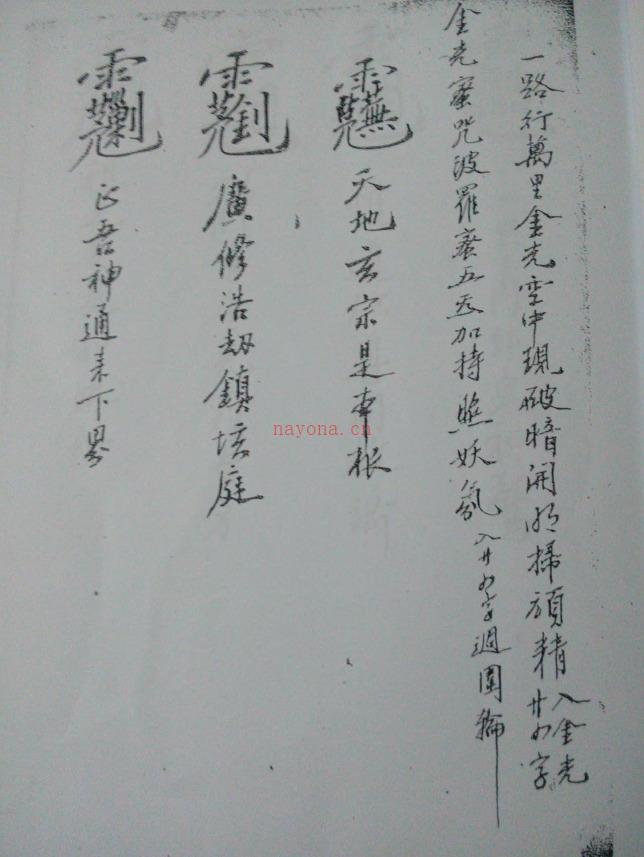 一路行萬里金光空中現破暗開明掃頑精 入金光廿四字
金光蜜咒波羅蜜五丞加持照妖氛 入廿四字週圍輪
天地玄宗是本根
廣修浩劫鎮垓庭
正吾神通来下界
nayona.cn